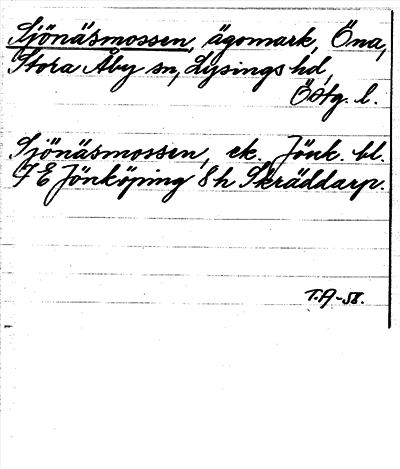 Sjönäsmossen, ägomark, Öna,
Stora Åby sn, Lysings hd,
Östg. l.
Sjönäsmossen, ek. Jönk. bl.
7 E Jönköping 8h Skräddarp.
T.A-58.